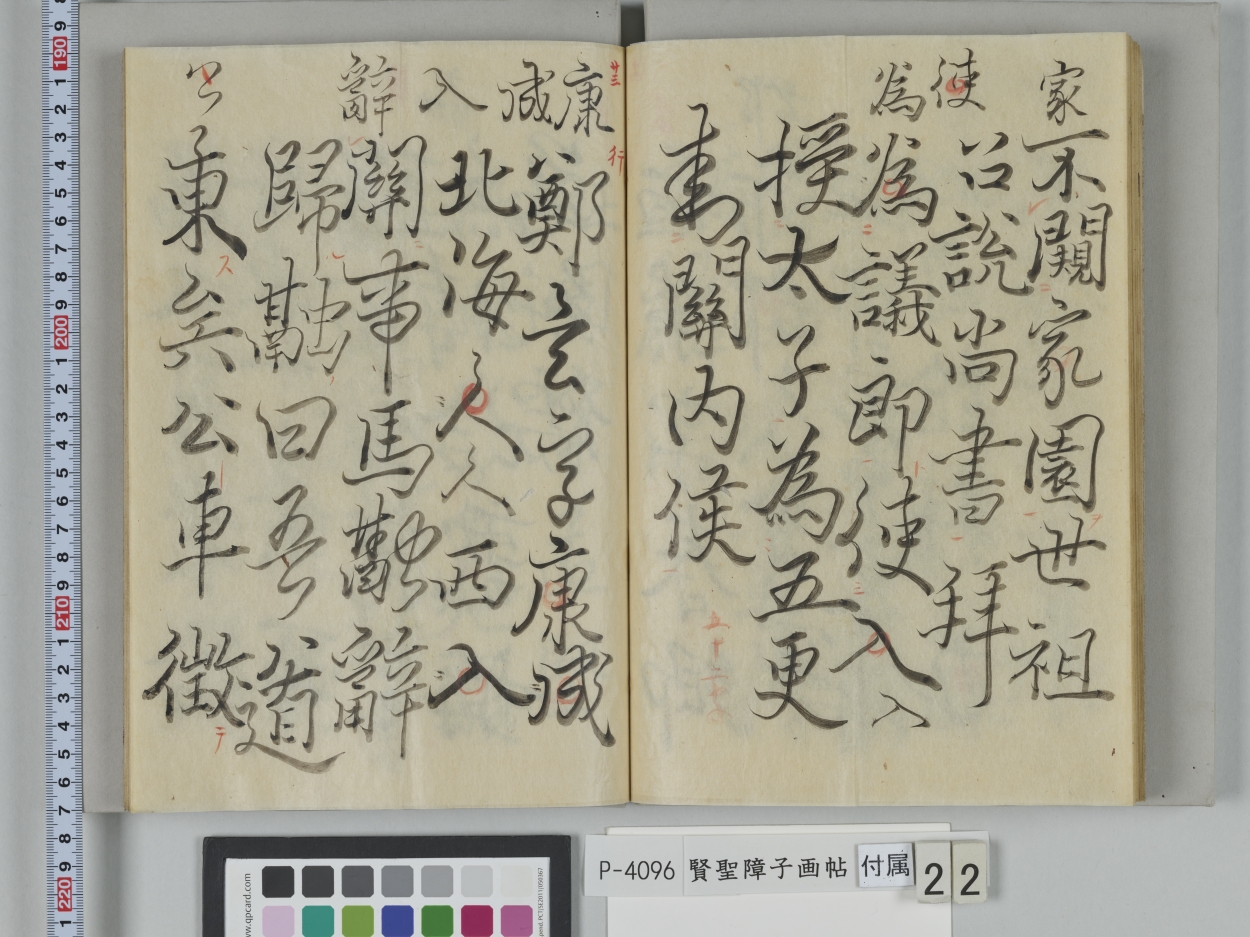 家
不闚家園世祖
使
召説尚書拜
為
為議郎使入入
授太子為五更
封關内侯
康
成
鄭玄字康成
入
北海人人西入
辭
關事馬融辭
歸融曰吾道
東矣公車徴
P-4096 賢聖障子画帖 付属 22